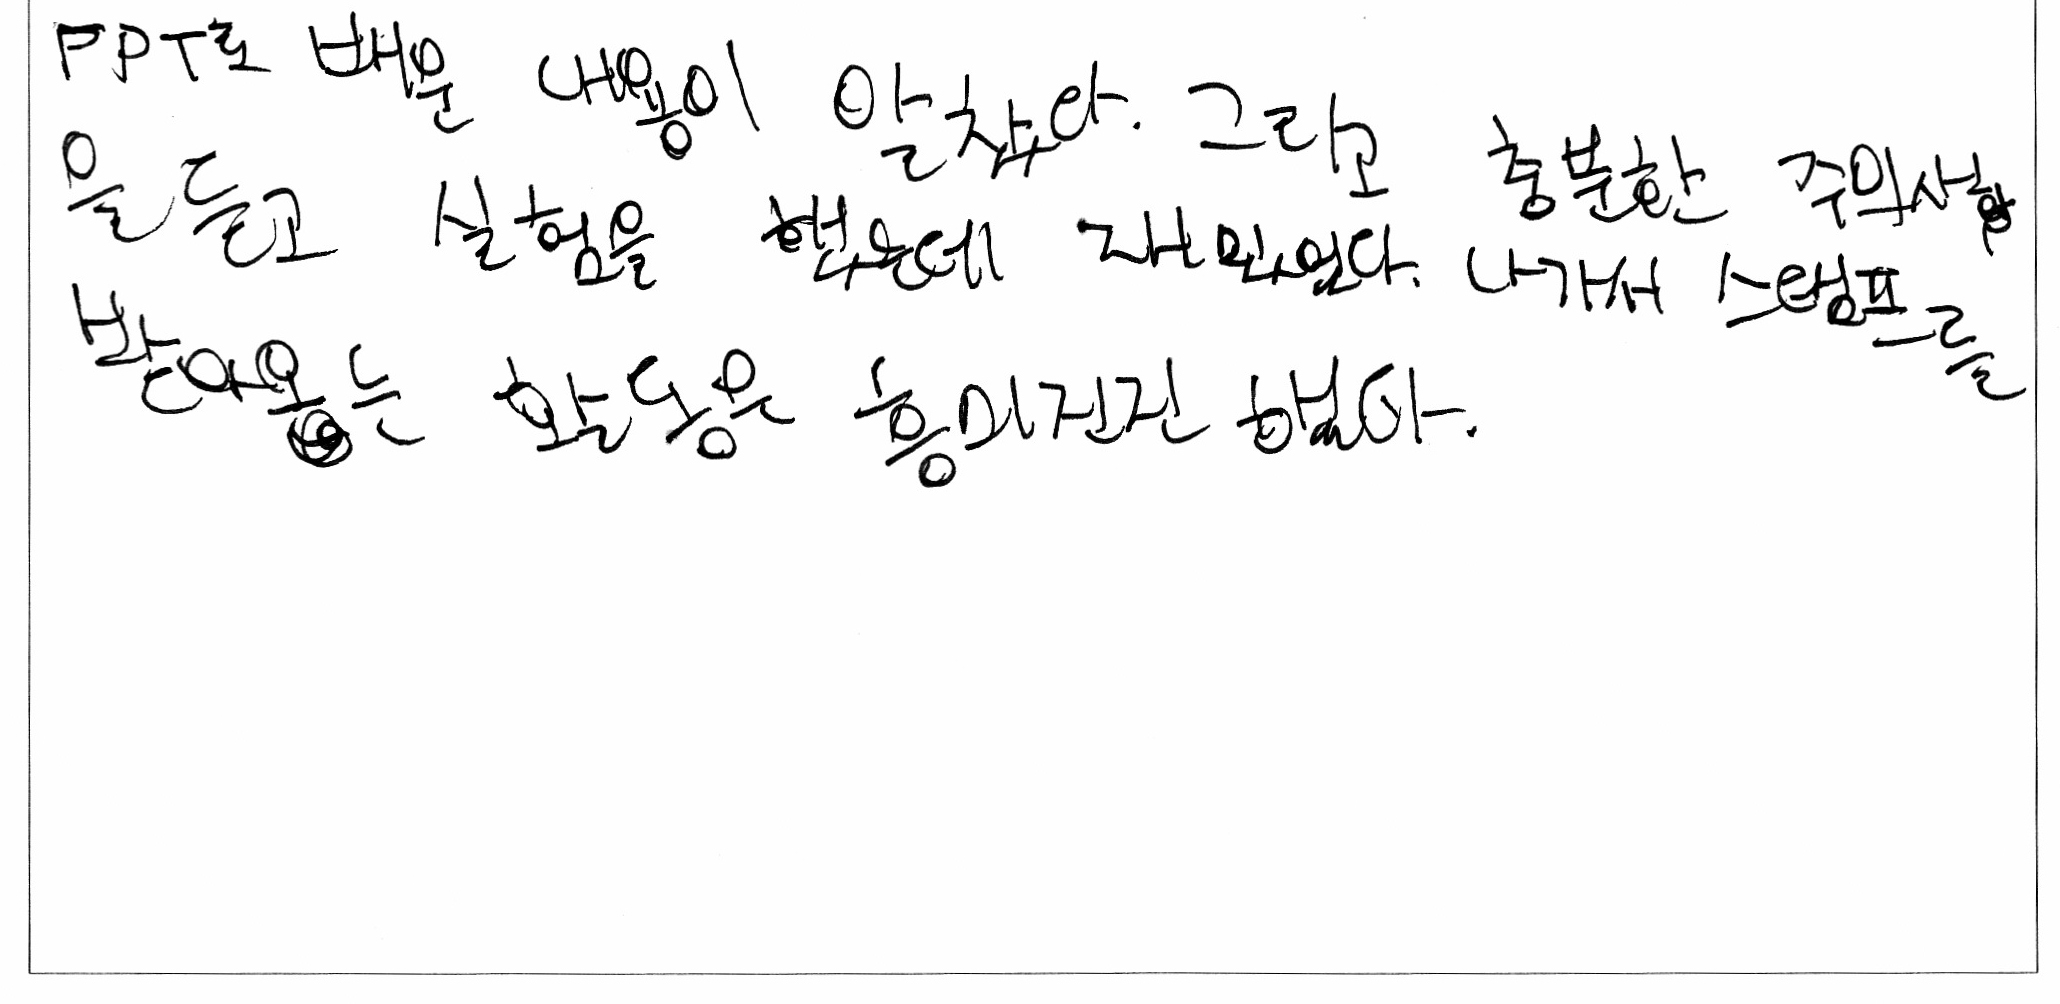 PPT로 배운 내용이 알찼다. 그리고 충분한 주의사항
을 듣고 실험을 했는데 재밌었다. 나가서 스탬프를
받아오는 활동은 흥미진진 했다.